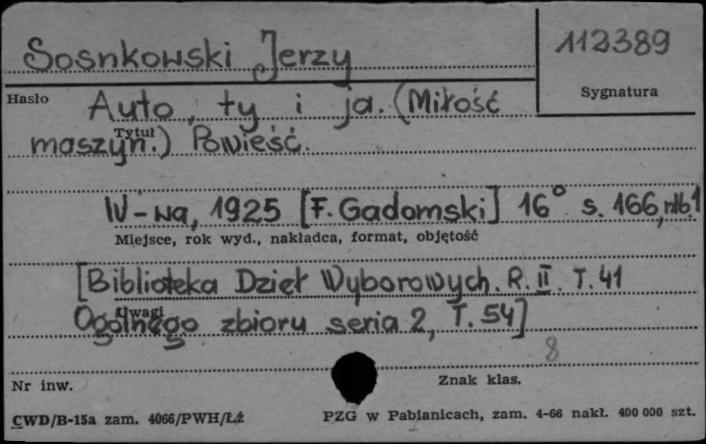 Sosnkowski Jerzy
112389
Hasło
Sygnatura
Auto, ty i ja. (Miłość
Tytuł
maszyn.) Powieść.
W-wa, 1925 [F. Gadomski] 16° s. 166, nlb. 1
Miejsce, rok wyd., nakładca, format, objętość
[Biblioteka Dzieł Wyborowych. R. II. T. 41
Uwagi
Ogólnego zbioru seria 2, T. 54]
8
Nr inw.
Znak klas.
CWD/B-15a zam. 4066/PWH/ŁŻ
PZG w Pabianicach, zam. 4-66 nakł. 400 000 szt.